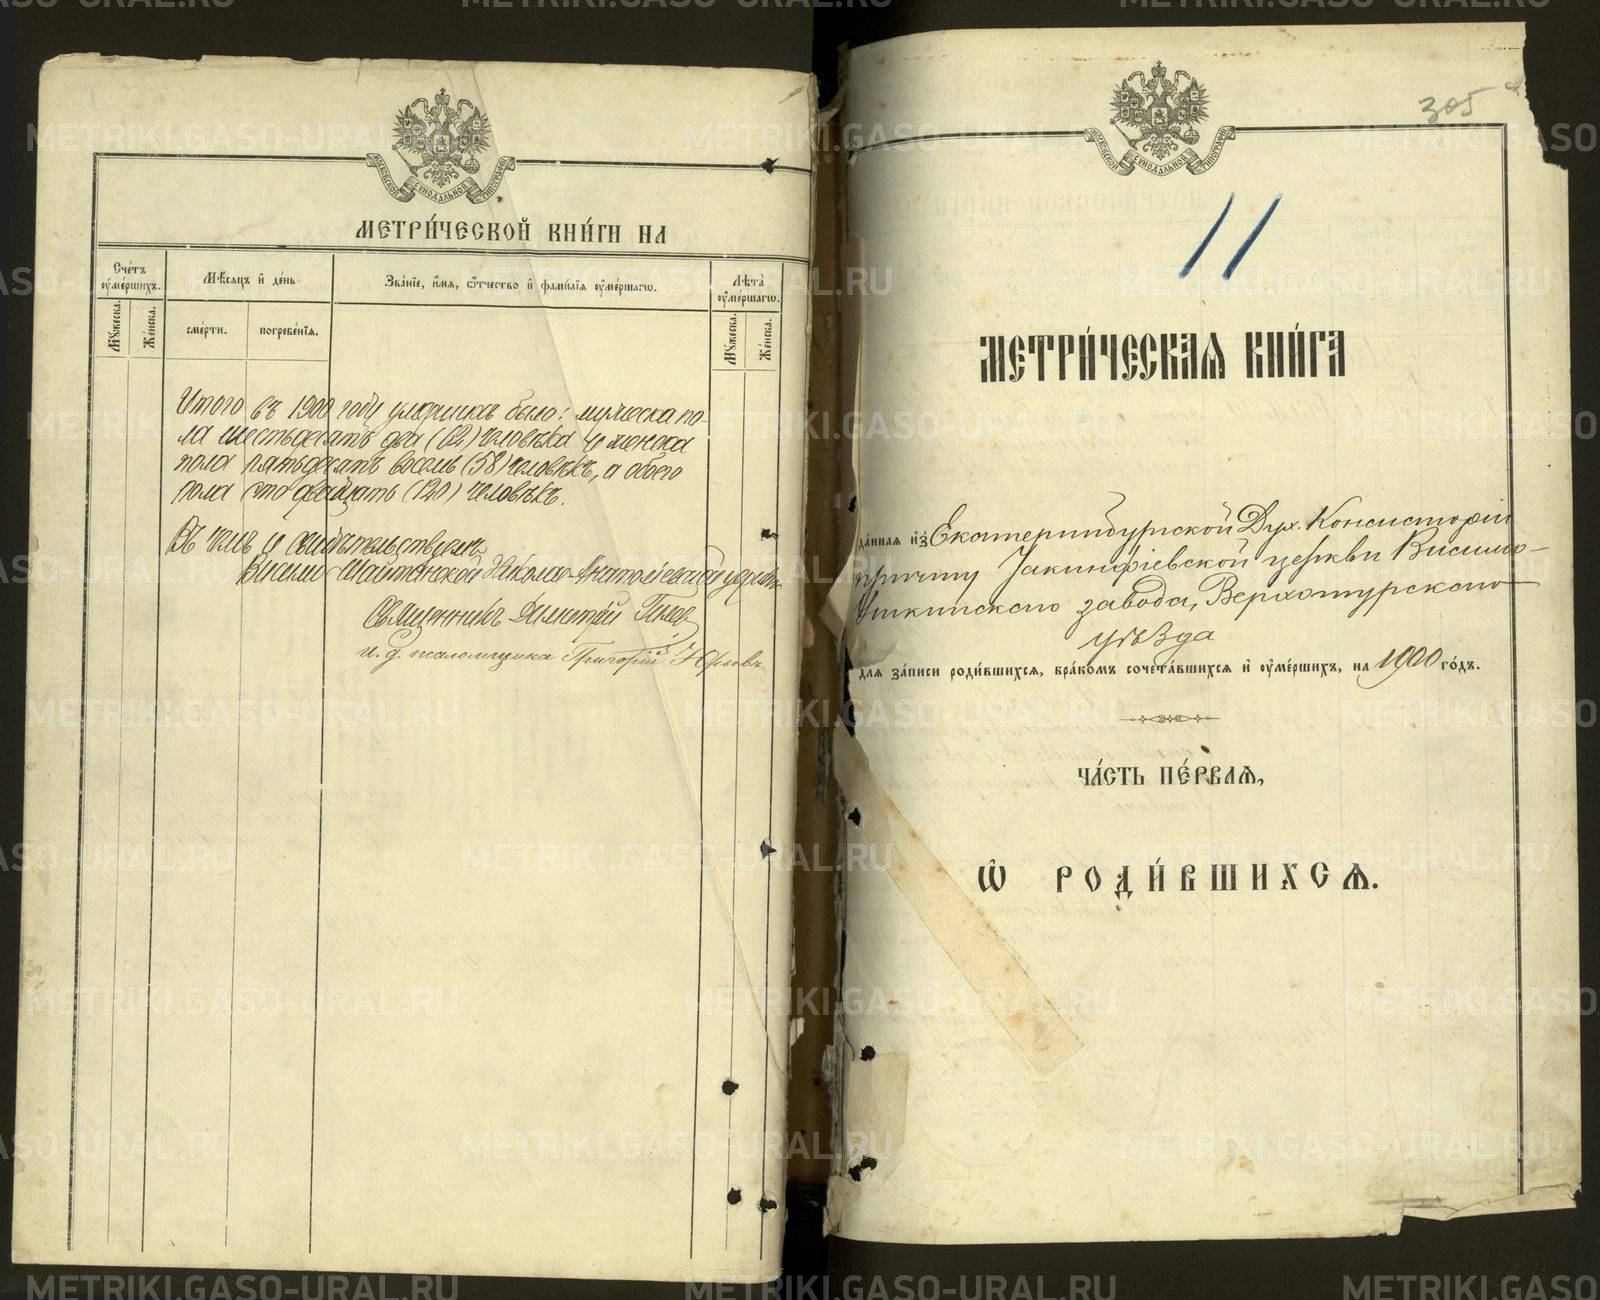 МОСКОВСКОЙ СѴНОДАЛЬНОЙ ТИПОГРАФІИ
МЕТРИ́ЧЕСКОЙ КНИ́ГИ НА
Сче́тъ оу҆ме́ршихъ.
Мѣ́сяцъ и҆ де́нь
Зва́нїе, и҆́мя, ѻ҆́тчество и҆ фами́лїя оу҆ме́ршагѡ.
Лѣ́та оу҆ме́ршагѡ.
Мꙋ́жеска.
Же́нска.
сме́рти.
погребе́нїя.
Мꙋ́жеска.
Же́нска.
Итого въ 1900 году умершихъ было: мужеска по-
ла шестьдесятъ два (62) человѣка и женска
пола пятьдесятъ восемь (58) человѣкъ, а обоего
пола сто двадцать (120) человѣкъ.
Въ чемъ и свидѣтельствуемъ
Висимо-Шайтанской Николае-Анатоліевской церкви
Священникъ Димитрій
и. д. псаломщика Григорій
305
МОСКОВСКОЙ СѴНОДАЛЬНОЙ ТИПОГРАФІИ
11
МЕТРИ́ЧЕСКАѦ КНИ́ГА
да́нная и҆з̾ Екатеринбургской Дух. Консисторіи
причту Іакинфіевской церкви Висимо-
Уткинскаго завода, Верхотурскаго
уѣзда
для за́писи роди́вшихся, бра́комъ сочета́вшихся и҆ оу҆ме́ршихъ, на 1900 го́дъ.
ЧА́СТЬ ПЕ́РВАѦ,
Ѡ҆ РОДИ́ВШИХСѦ.
METRIKI.GASO-URAL.RU